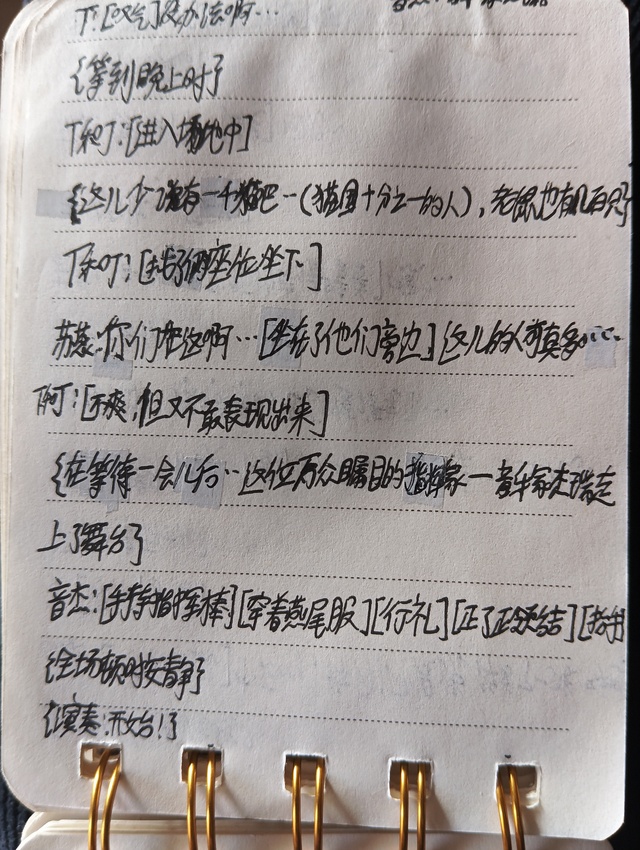 T:[叹气]没办法啊…
{等到晚上时了
T和丁:[进入场地中]
{这儿少说有一千猫吧…(猫国十分之一的人),老鼠也有几百只
T和丁:[找了俩座位坐下]
苏菜:你们在这啊…[坐在了他们旁边]这儿的人可真多…
T和丁:[不爽,但又不敢表现出来]
{在等待一会儿后…这位万众瞩目的指挥家一音乐家杰瑞走
上了舞台了
音杰:[手拿指挥棒][穿着燕尾服][行礼][正了正领结][指挥
{全场顿时安静了
{演奏:开始!了